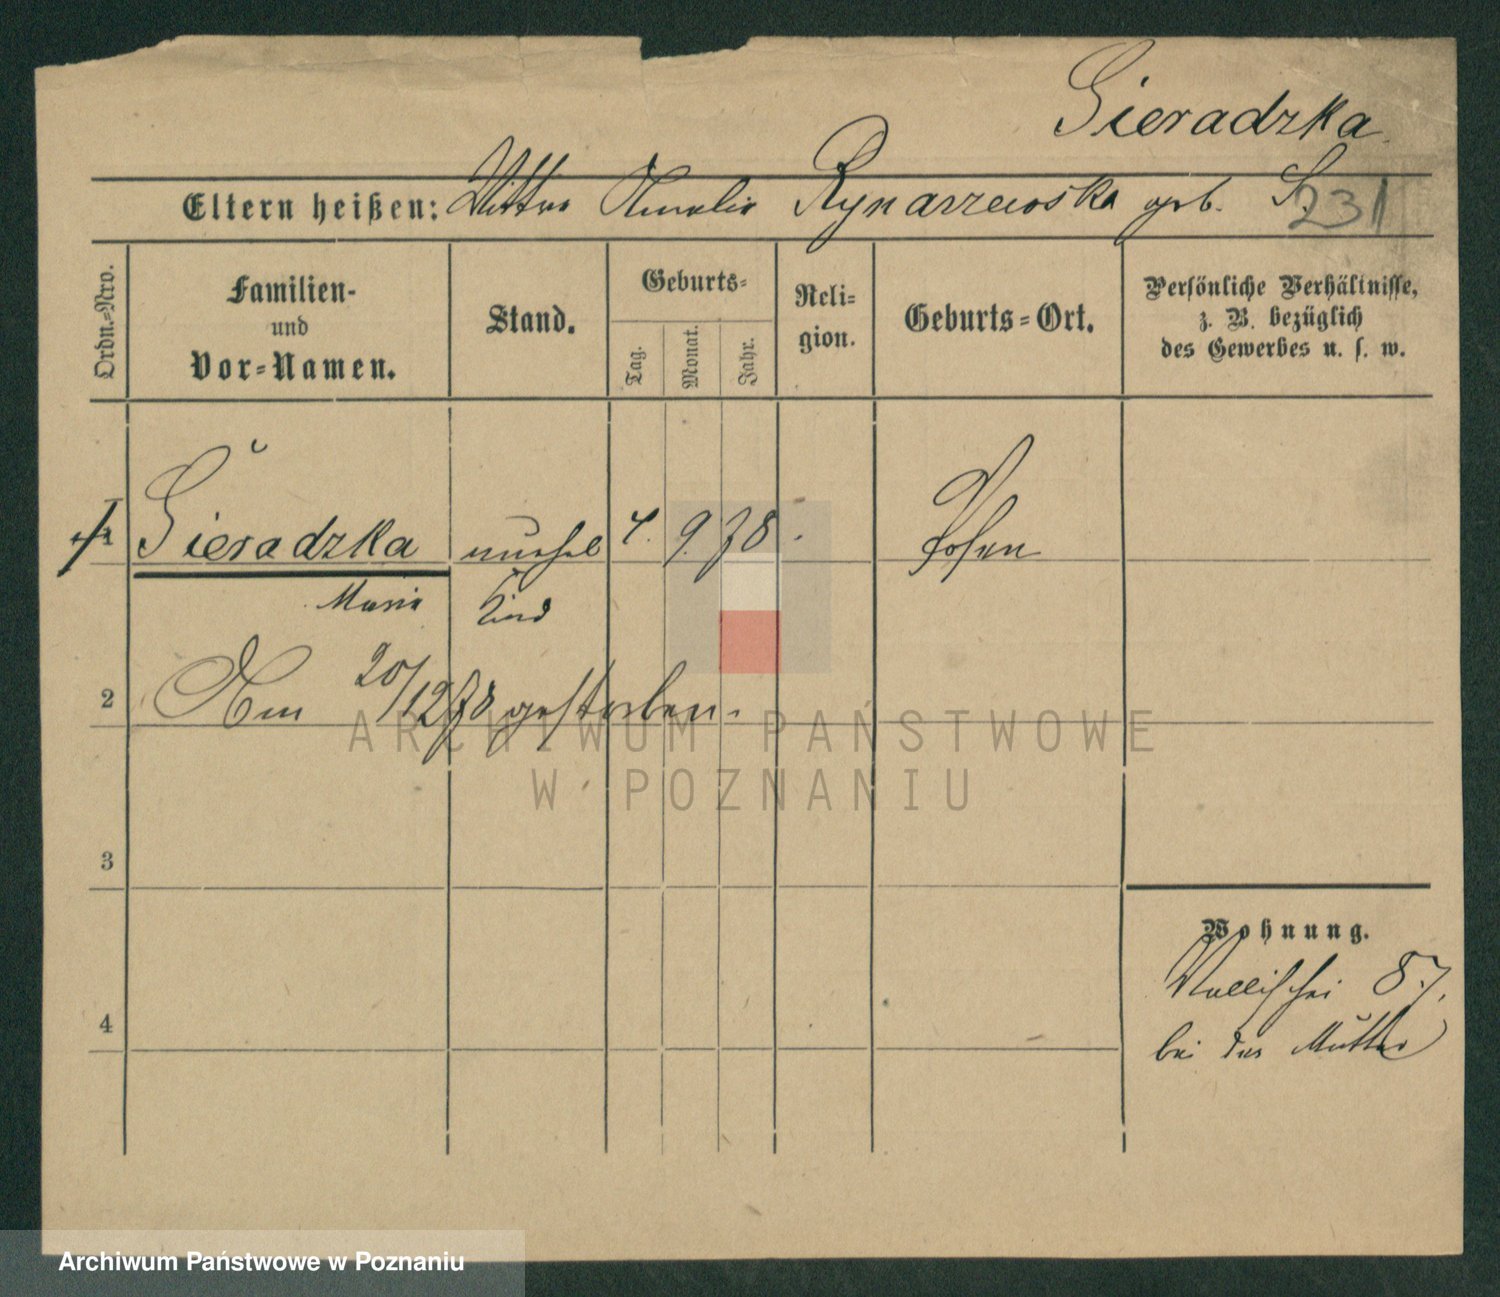 Sieradzka
Eltern heißen: Wittwe Amalie Rynarzewska geb. S.
231
Ordn.-Nro.
Familien-
und
Vor-Namen.
Stand.
Geburts-
Tag.
Monat.
Jahr.
Reli-
gion.
Geburts-Ort.
Persönliche Verhältnisse,
z. B. bezüglich
des Gewerbes u. s. w.
1 Sieradzka unehel 4. 9. 78. Posen
Maria Kind
2 Am 20/12 78 gestorben.
3
4
Wohnung.
Wallischei 87.
bei der Mutter
ARCHIWUM PAŃSTWOWE
W POZNANIU
Archiwum Państwowe w Poznaniu